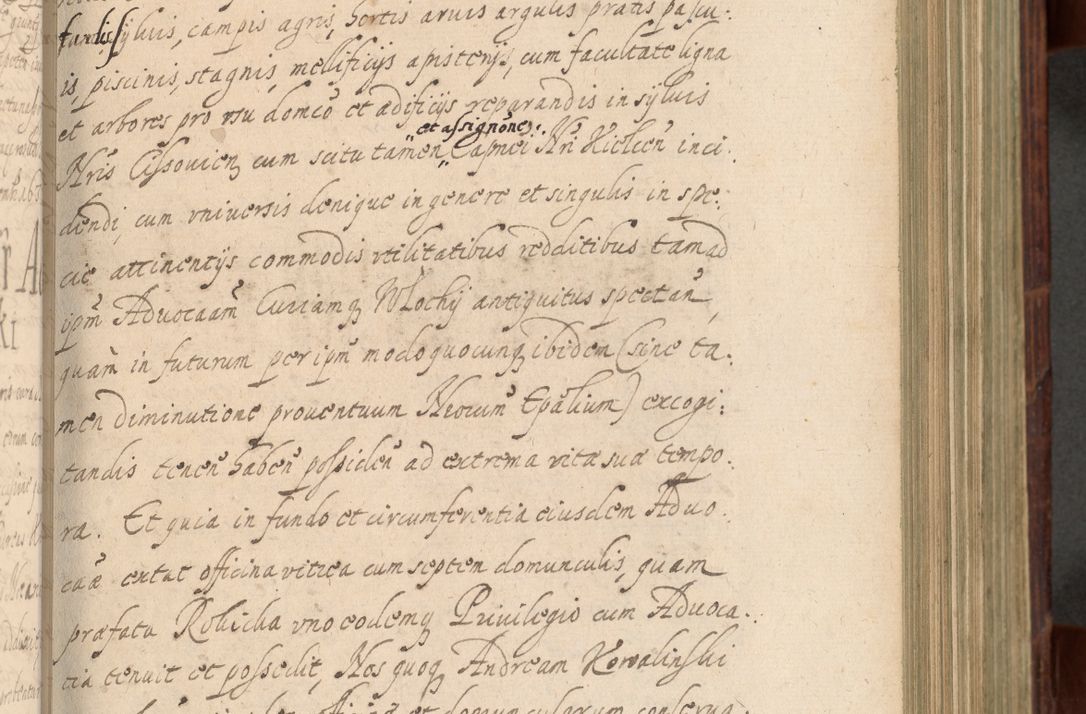 fundis sylvis, campis agris, hortis arvis argulis pratis pascu:
is, piscinis, stagnis, mellificijs apisterijs, cum facultate ligna
et arbores pro usu domco et ædificijs reparandis in sylvis
et assignōne
Nris Cissovien, cum scitu tamen Capnei Nri Kielcen inci:
dendi, cum vniversis denique in genere et singulis in spe:
cie attinentijs commodis vtilitatibus redditibus tam ad
ipm Advocaam Curiamq Wlochij antiquitus spectan,
quam in futurum per ipm modoquocunq ibidem (sine ta:
men diminutione proventuum Nrorum Epalium) excogi:
tandis tenen haben possiden ad extrema vitæ suæ tempo:
ra. Et quia in fundo et circumferentia eiusdem Advo:
caæ extat officina vitrea cum septem domunculis, quam
præfata Robicka vno eodemq Privilegio cum Advoca:
tia tenuit et possedit, Nos quoq Andream Kowalinski
officinæ et domuncularum conserva: